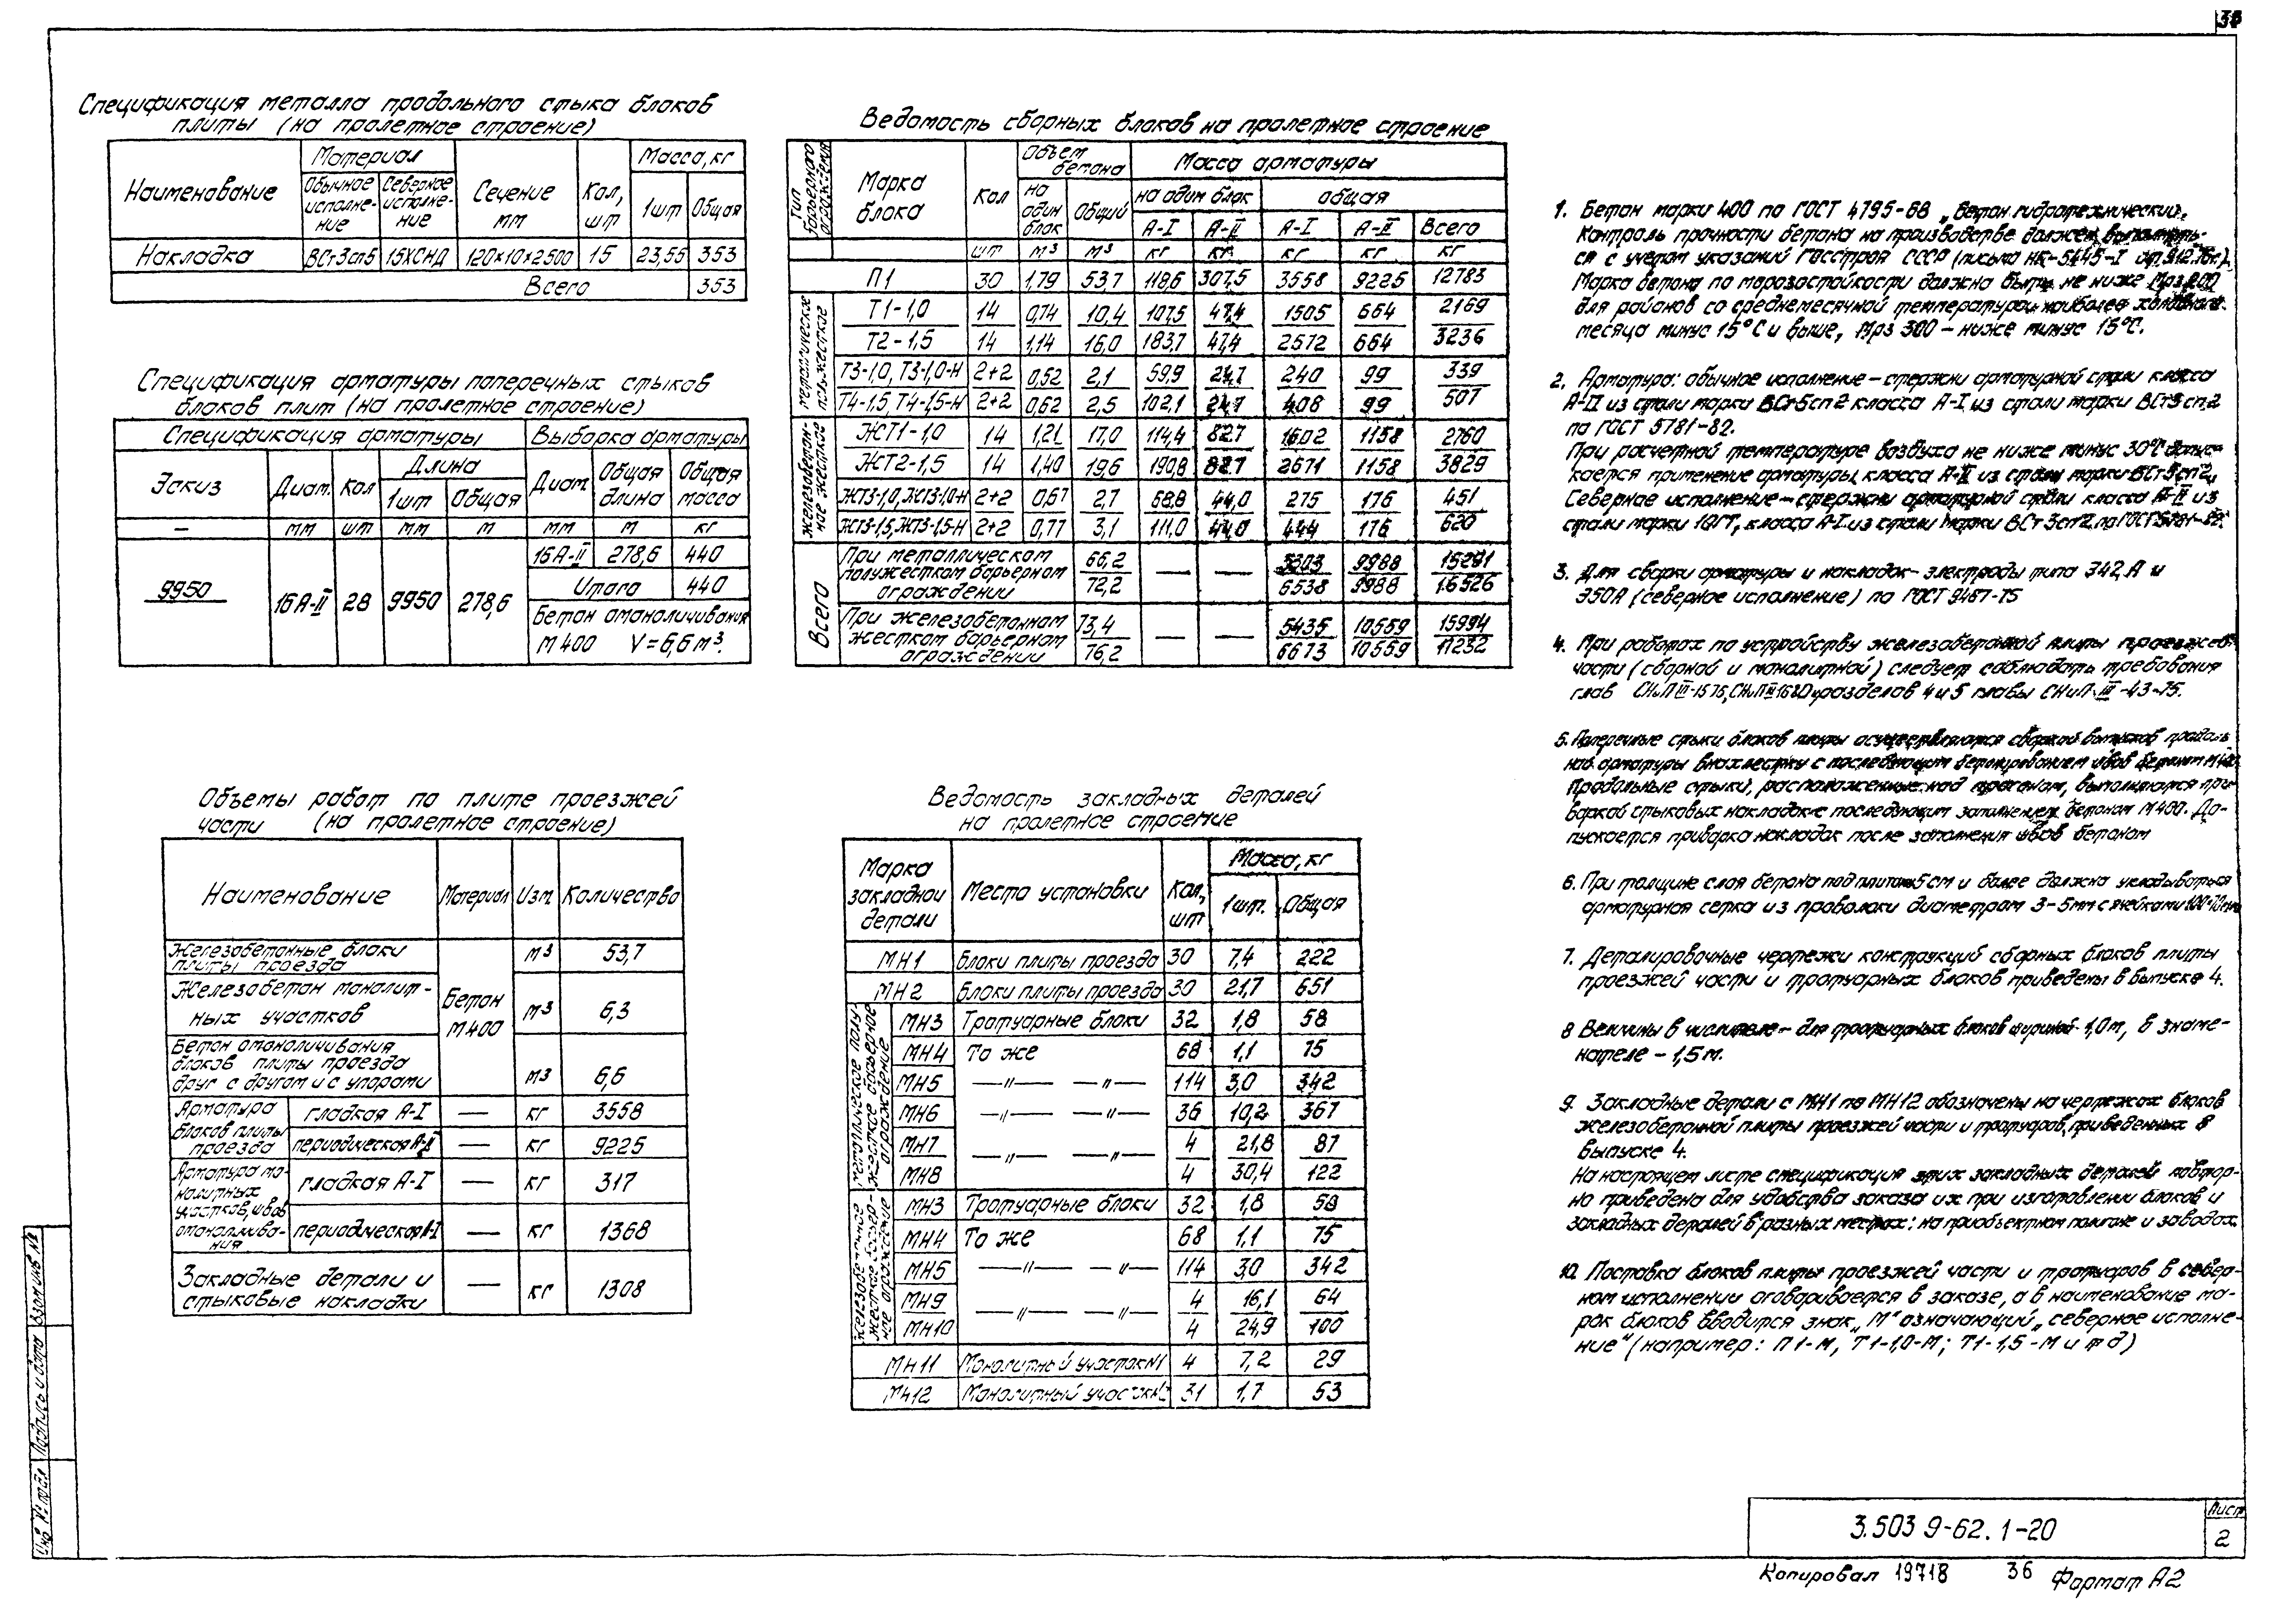 36
Спецификация металла продольного стыка блоков
плиты (на пролетное строение)
Наименование | Материал | Сечение мм | Кол, шт | Масса, кг
Обычное исполнение | Северное исполнение | 1шт | Общая
Накладка | ВСт3сп5 | 15ХСНД | 120×10×2500 | 15 | 23,55 | 353
Всего | 353
Спецификация арматуры поперечных стыков
блоков плит (на пролетное строение)
Спецификация арматуры | Выборка арматуры
Эскиз | Диам. | Кол | Длина | Диам. | Общая длина | Общая масса
1шт | Общая
— | мм | шт | мм | м | мм | м | кг
9950 | 16А-II | 28 | 9950 | 278,6 | 16А-II | 278,6 | 440
Итого | 440
Бетон омоноличивания
М400 V=6,6м³.
Объемы работ по плите проезжей
части (на пролетное строение)
Наименование | Материал | Изм. | Количество
Железобетонные блоки плиты проезда | Бетон М400 | м³ | 53,7
Железобетон монолитных участков | м³ | 6,3
Бетон омоноличивания блоков плиты проезда друг с другом и с упорами | м3 | 6,6
Арматура блоков плиты проезда | гладкая А-I | — | кг | 3558
периодическая А-II | — | кг | 9225
Арматура монолитных участков, швов омоноличивания | гладкая А-I | — | кг | 317
периодическая | — | кг | 1368
Закладные детали и стыковые накладки | — | кг | 1308
Ведомость сборных блоков на пролетное строение
Тип барьерного ограждения | Марка блока | Кол | Объем бетона | Масса арматуры
на один блок | Общий | на один блок | общая
А-I | А-II | А-I | А-II | Всего
шт | м³ | м³ | кг | кг | кг | кг | кг
П1 | 30 | 1,79 | 53,7 | 118,6 | 307,5 | 3558 | 9225 | 12783
металлическое полужесткое
Т1-1,0 | 14 | 0,74 | 10,4 | 107,5 | 47,4 | 1505 | 664 | 2169
Т2-1,5 | 14 | 1,14 | 16,0 | 183,7 | 47,4 | 2572 | 664 | 3236
Т3-1,0, Т3-1,0-Н | 2+2 | 0,52 | 2,1 | 59,9 | 24,7 | 240 | 99 | 339
Т4-1,5, Т4-1,5-Н | 2+2 | 0,62 | 2,5 | 102,1 | 24,7 | 408 | 99 | 507
железобетонное жесткое
ЖСТ1-1,0 | 14 | 1,21 | 17,0 | 114,4 | 82,7 | 1602 | 1158 | 2760
ЖСТ2-1,5 | 14 | 1,40 | 19,6 | 190,8 | 82,7 | 2671 | 1158 | 3829
ЖСТ3-1,0, ЖСТ3-1,0-Н | 2+2 | 0,67 | 2,7 | 68,8 | 44,0 | 275 | 176 | 451
ЖСТ3-1,5, ЖСТ3-1,5-Н | 2+2 | 0,77 | 3,1 | 111,0 | 44,0 | 444 | 176 | 620
Всего
При металлическом полужестком барьерном ограждении | 66,2 | — | — | 5303 | 9988 | 15291
72,2 | 6538 | 9988 | 16526
При железобетонном жестком барьерном ограждении | 73,4 | — | — | 5435 | 10559 | 15994
76,2 | 6673 | 10559 | 17232
Ведомость закладных деталей
на пролетное строение
Марка закладной детали | Место установки | Кол, шт | Масса, кг
1шт. | Общая
МН1 | Блоки плиты проезда | 30 | 7,4 | 222
МН2 | Блоки плиты проезда | 30 | 21,7 | 651
металлическое полужесткое барьерное ограждение
МН3 | Тротуарные блоки | 32 | 1,8 | 58
МН4 | То же | 68 | 1,1 | 75
МН5 | —"— —"— | 114 | 3,0 | 342
МН6 | —"— —"— | 36 | 10,2 | 367
МН7 | —"— —"— | 4 | 21,8 | 87
МН8 | 4 | 30,4 | 122
железобетонное жесткое барьерное ограждение
МН3 | Тротуарные блоки | 32 | 1,8 | 58
МН4 | То же | 68 | 1,1 | 75
МН5 | —"— —"— | 114 | 3,0 | 342
МН9 | —"— —"— | 4 | 16,1 | 64
МН10 | 4 | 24,9 | 100
МН11 | Монолитный участок N1 | 4 | 7,2 | 29
МН12 | Монолитный участок | 31 | 1,7 | 53
1. Бетон марки 400 по ГОСТ 4795-68 „Бетон гидротехнический".
Контроль прочности бетона на производстве должен выполнять-
ся с учетом указаний Госстроя СССР (письмо НК-5445-I от 9.12.76г.).
Марка бетона по морозостойкости должна быть не ниже Мрз 200
для районов со среднемесячной температурой наиболее холодного
месяца минус 15°С и выше, Мрз 300 – ниже минус 15°С.
2. Арматура: обычное исполнение – стержни арматурной стали класса
А-II из стали марки ВСт5сп2 класса А-I из стали марки ВСт3сп2
по ГОСТ 5781-82.
При расчетной температуре воздуха не ниже минус 30°С допус-
кается применение арматуры класса А-II из стали марки ВСт5сп2.
Северное исполнение – стержни арматурной стали класса А-II из
стали марки 10ГТ, класса А-I из стали марки ВСт3сп2 по ГОСТ 5781-82.
3. Для сварки арматуры и накладок – электроды типа Э42А и
Э50А (северное исполнение) по ГОСТ 9467-75
4. При работах по устройству железобетонной плиты проезжей
части (сборной и монолитной) следует соблюдать требования
глав СНиП III-15-76, СНиП III-16-80 и разделов 4 и 5 главы СНиП III-43-75.
5. Поперечные стыки блоков плиты осуществляются сваркой выпусков продоль-
ной арматуры внахлестку с последующим бетонированием швов бетоном М400.
Продольные стыки, расположенные над прогоном, выполняются при-
варкой стыковых накладок с последующим заполнением бетоном М400. До-
пускается приварка накладок после заполнения швов бетоном
6. При толщине слоя бетона под плитами 5см и более должна укладываться
арматурная сетка из проволоки диаметром 3-5мм с ячейками
7. Деталировочные чертежи конструкций сборных блоков плиты
проезжей части и тротуарных блоков приведены в выпуске 4.
8 Величины в числителе – для тротуарных блоков шириной 1,0м, в знаме-
нателе – 1,5м.
9. Закладные детали с МН1 по МН12 обозначены на чертежах блоков
железобетонной плиты проезжей части и тротуаров, приведенных в
выпуске 4.
На настоящем листе спецификация этих закладных деталей повтор-
но приведена для удобства заказа их при изготовлении блоков и
закладных деталей в разных местах: на приобъектном полигоне и заводах.
10. Поставка блоков плиты проезжей части и тротуаров в север-
ном исполнении оговаривается в заказе, а в наименование ма-
рок блоков вводится знак „М" означающий „северное исполне-
ние" (например: П1-М, Т1-1,0-М; Т1-1,5-М и т д)
Инв N° подл | Подпись и дата | Взам инв N°
3.503 9-62. 1-20
Лист
2
Копировал 19718 36 Формат А2